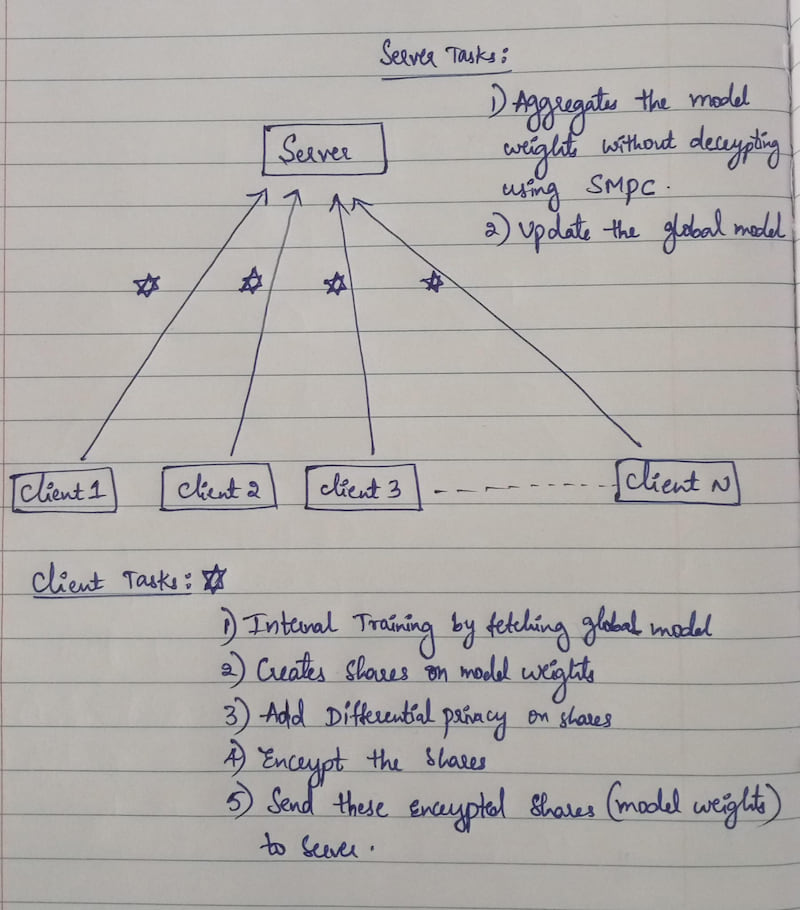 Server Tasks:
1) Aggregates the model
weights without decrypting
using SMPC.
2) Update the global model
Server
Client 1
Client 2
Client 3
Client N
Client Tasks:
1) Internal Training by fetching global model
2) Creates shares on model weights
3) Add Differential privacy on shares
4) Encrypt the shares
5) Send these encrypted shares (model weights)
to server.